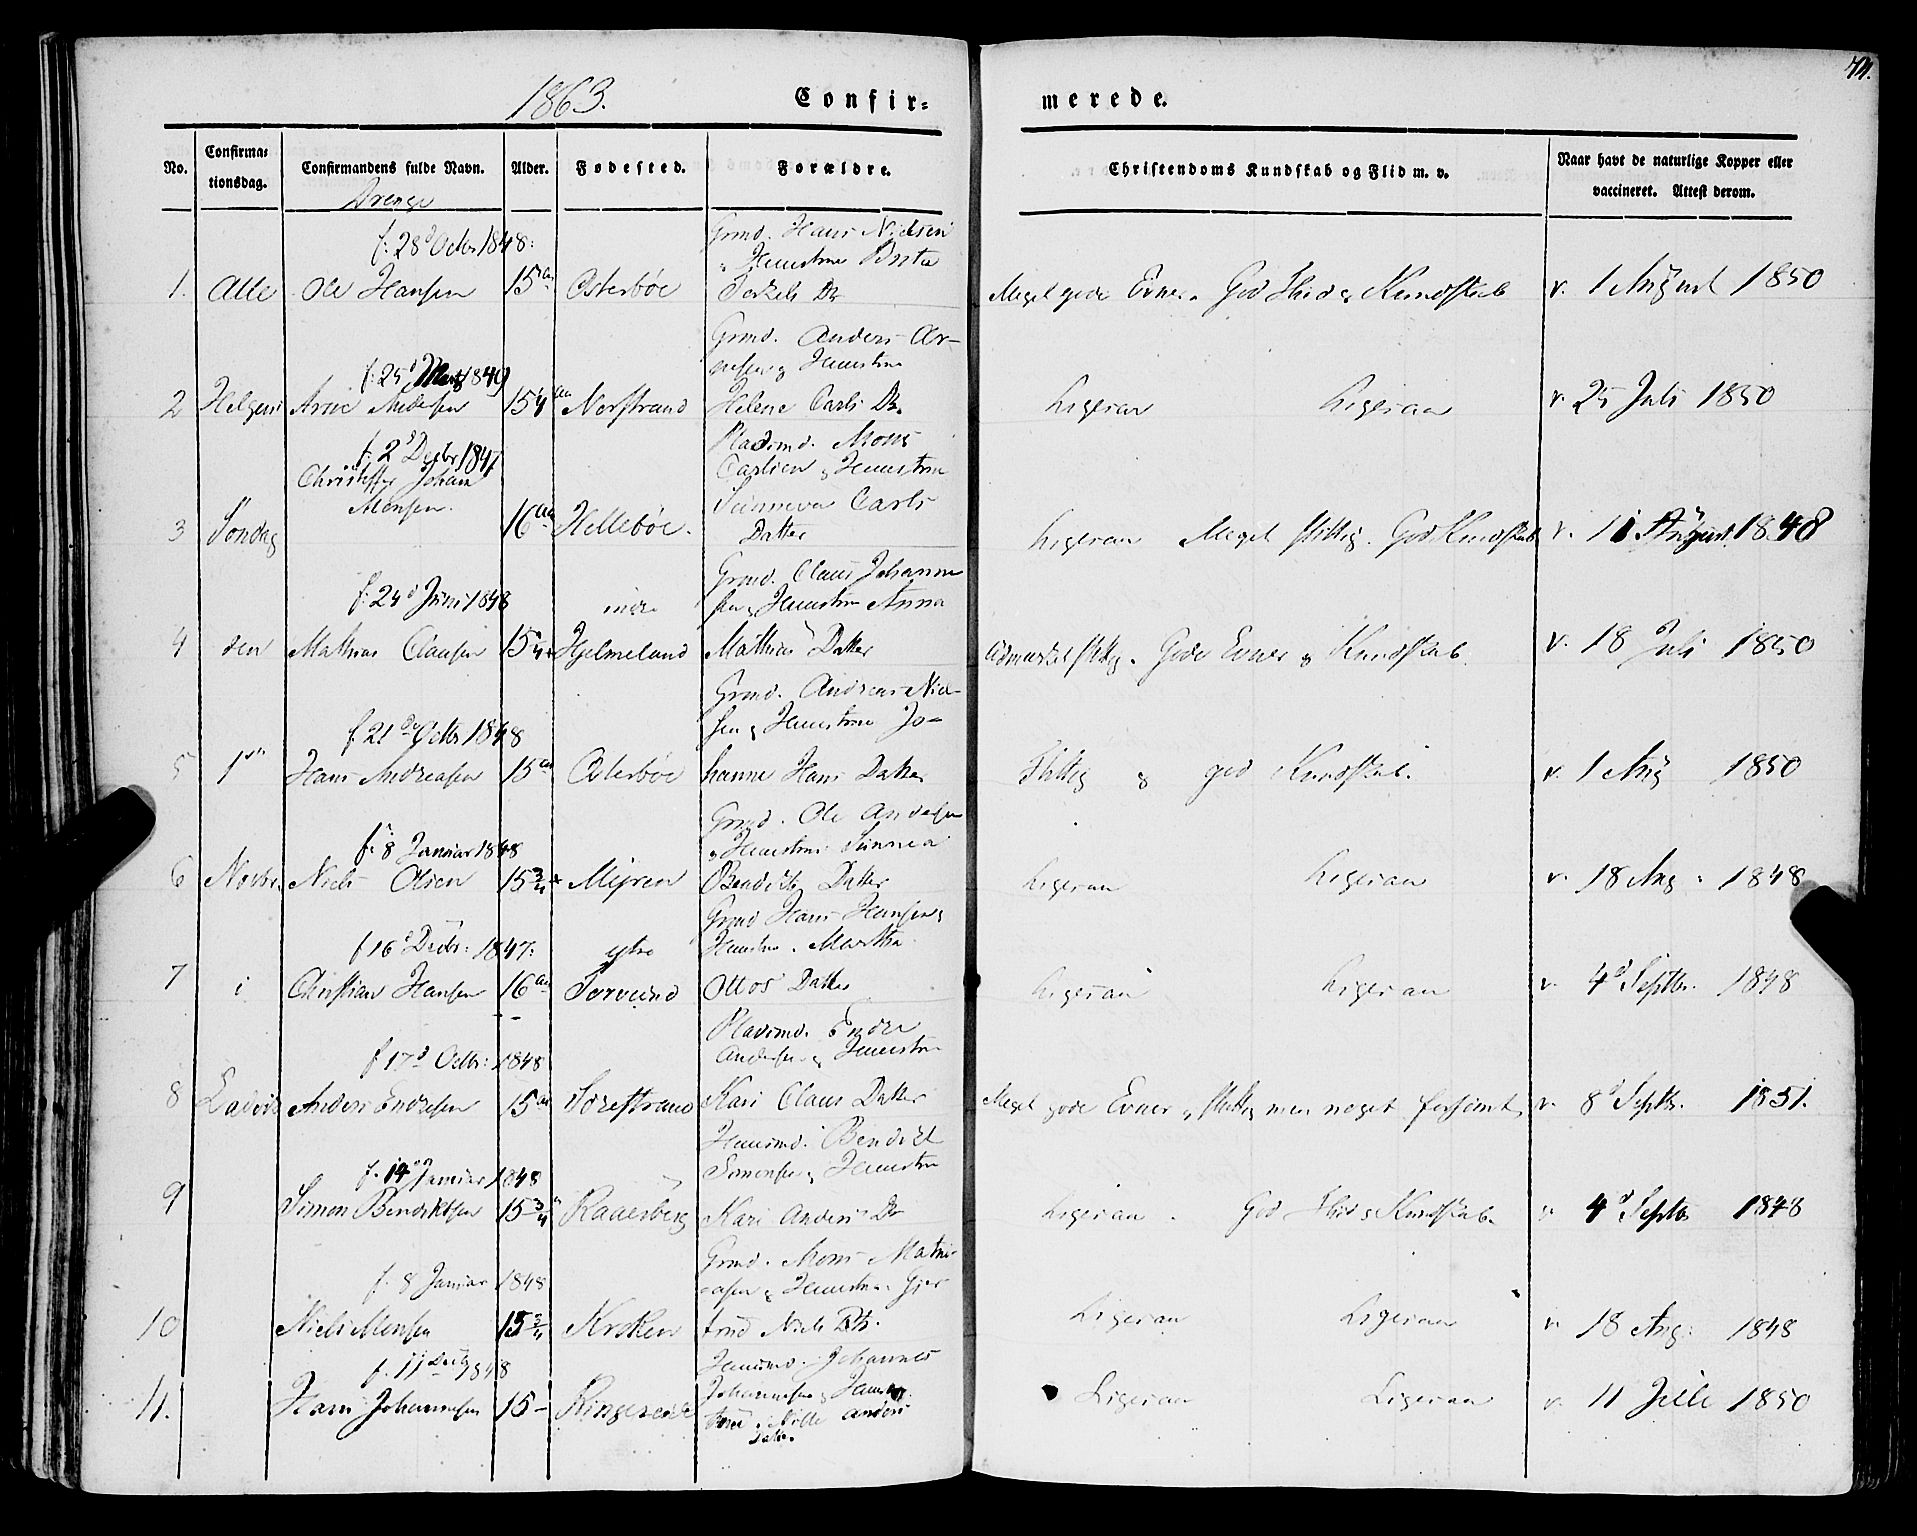 1863.
Confir-
merede.
74.
No.
Confirma-
tionsdag.
Confirmandens fulde Navn.
Alder.
Fødested.
Forældre.
Christendoms Kundskab og Flid m. v.
Naar havt de naturlige Kopper eller
vaccineret. Attest derom.
Drenge
f. 28d Octbr 1848.
Grmd. Hans Nielsen
& Hustru Brita
1. Alle Ole Hansen 15 Aar Osterbøe Terkels Dr Meget gode Evner. God Flid & Kundskab v. 1 August 1850
Grmd. Anders Ar-
f. 25d Marts 1849
nesen & Hustru
2 Helgens Arne Andersen 15 1/4 Norstrand Helene Carls Dr. Ligesaa Ligesaa v. 25 Juli 1850
f. 2d Decbr 1847
Pladsmd. Mons
Christoffer Johan
Carlsen & Hustru
Monsen.
Sunneva Carls
3 Søndag 16 Aar Hellebøe. Datter Ligesaa Meget flittig. God Kundskab v. 11 August 1848
Grmd. Claus Johanne
f. 24d Juni 1848
indre
sen & Hustru Anna
4 den Mathias Clausen 15 1/4 Hjelmeland Mathias Datter Udmærket flittig. Gode Evner & Kundskab. v. 18 Juli 1850
Grmd. Andreas Niel-
f. 21de Octbr 1848
sen & Hustru Jo-
5 1ste Hans Andreasen 15 Aar Osterbøe hanne Hans Datter Flittig & god Kundskab. v. 1 Aug 1850
Grmd. Ole Andersen
f. 8 Januar 1848
& Hustru Sunneva
6 Novbr. Niels Olsen 15 3/4 Myren Bendikts Datter Ligesaa Ligesaa v. 18 Aug. 1848
Grmd Hans Hansen &
f 16d Decbr: 1847.
ytre
Hustru Martha
7 i Christian Hansen 16 Aar Torvund Ottos Datter Ligesaa Ligesaa v. 4d Septbr. 1848
Pladsmd. Endre
f 17d Octbr: 1848
Andersen & Hustru
8 Ladvig Anders Endresen 15 Aar Sørestrand Kari Claus Datter Meget gode Evner & flittig men noget forsømt v. 8d Septbr. 1851.
Huusmd. Bendikt
f. 14de Januar 1848
Simonsen & Hustru
9 Simon Bendiktsen 15 3/4 Raaesberg Kari Anders Dr Ligesaa. God Flid & Kundskab. v. 4d Septbr 1848
Grmd. Mons Mathi-
f. 8 Januar 1848
asen & Hustru Gjer-
10 Niels Monsen 15 3/4 Kroken trud Niels Dtr. Ligesaa Ligesaa v. 18 Aug. 1848
f. 11 Decbr 1848
Huusmd. Johannes
Johannesen &
11. Hans Johannesen 15 Ringereide Nille Anders Ligesaa Ligesaa v. 11 Juli 1850
Datter